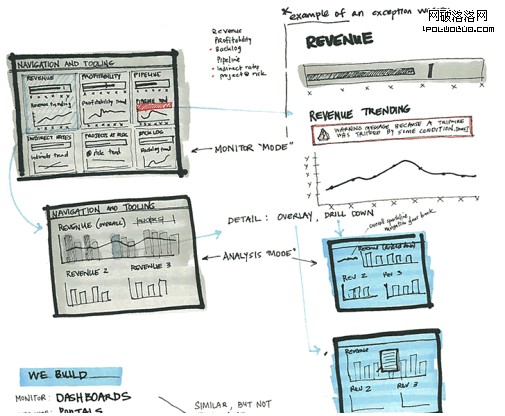 网破落落网
iPoLuoLuo.com
* example of an exception
REVENUE
Revenue
Profitability
Backlog
Pipeline
Indirect rates
project @ risk
NAVIGATION AND TOOLING
REVENUE
PROFITABILITY
PIPELINE
Revenue trending
Profitability trend
INDIRECT RATES
PROJECTS AT RISK
BACKLOG
@ risk trend
Backlog trend
MONITOR "MODE"
REVENUE TRENDING
WARNING MESSAGE BECAUSE A TRIPWIRE
WAS TRIPPED BY SOME CONDITION.
NAVIGATION AND TOOLING
REVENUE (OVERALL)
REVENUE 2
REVENUE 3
DETAIL: OVERLAY, DRILL DOWN
ANALYSIS "MODE"
REV 2
REV 3
REVENUE
REV 2
REV 3
WE BUILD
MONITOR: DASHBOARDS
PORTALS
SIMILAR, BUT NOT